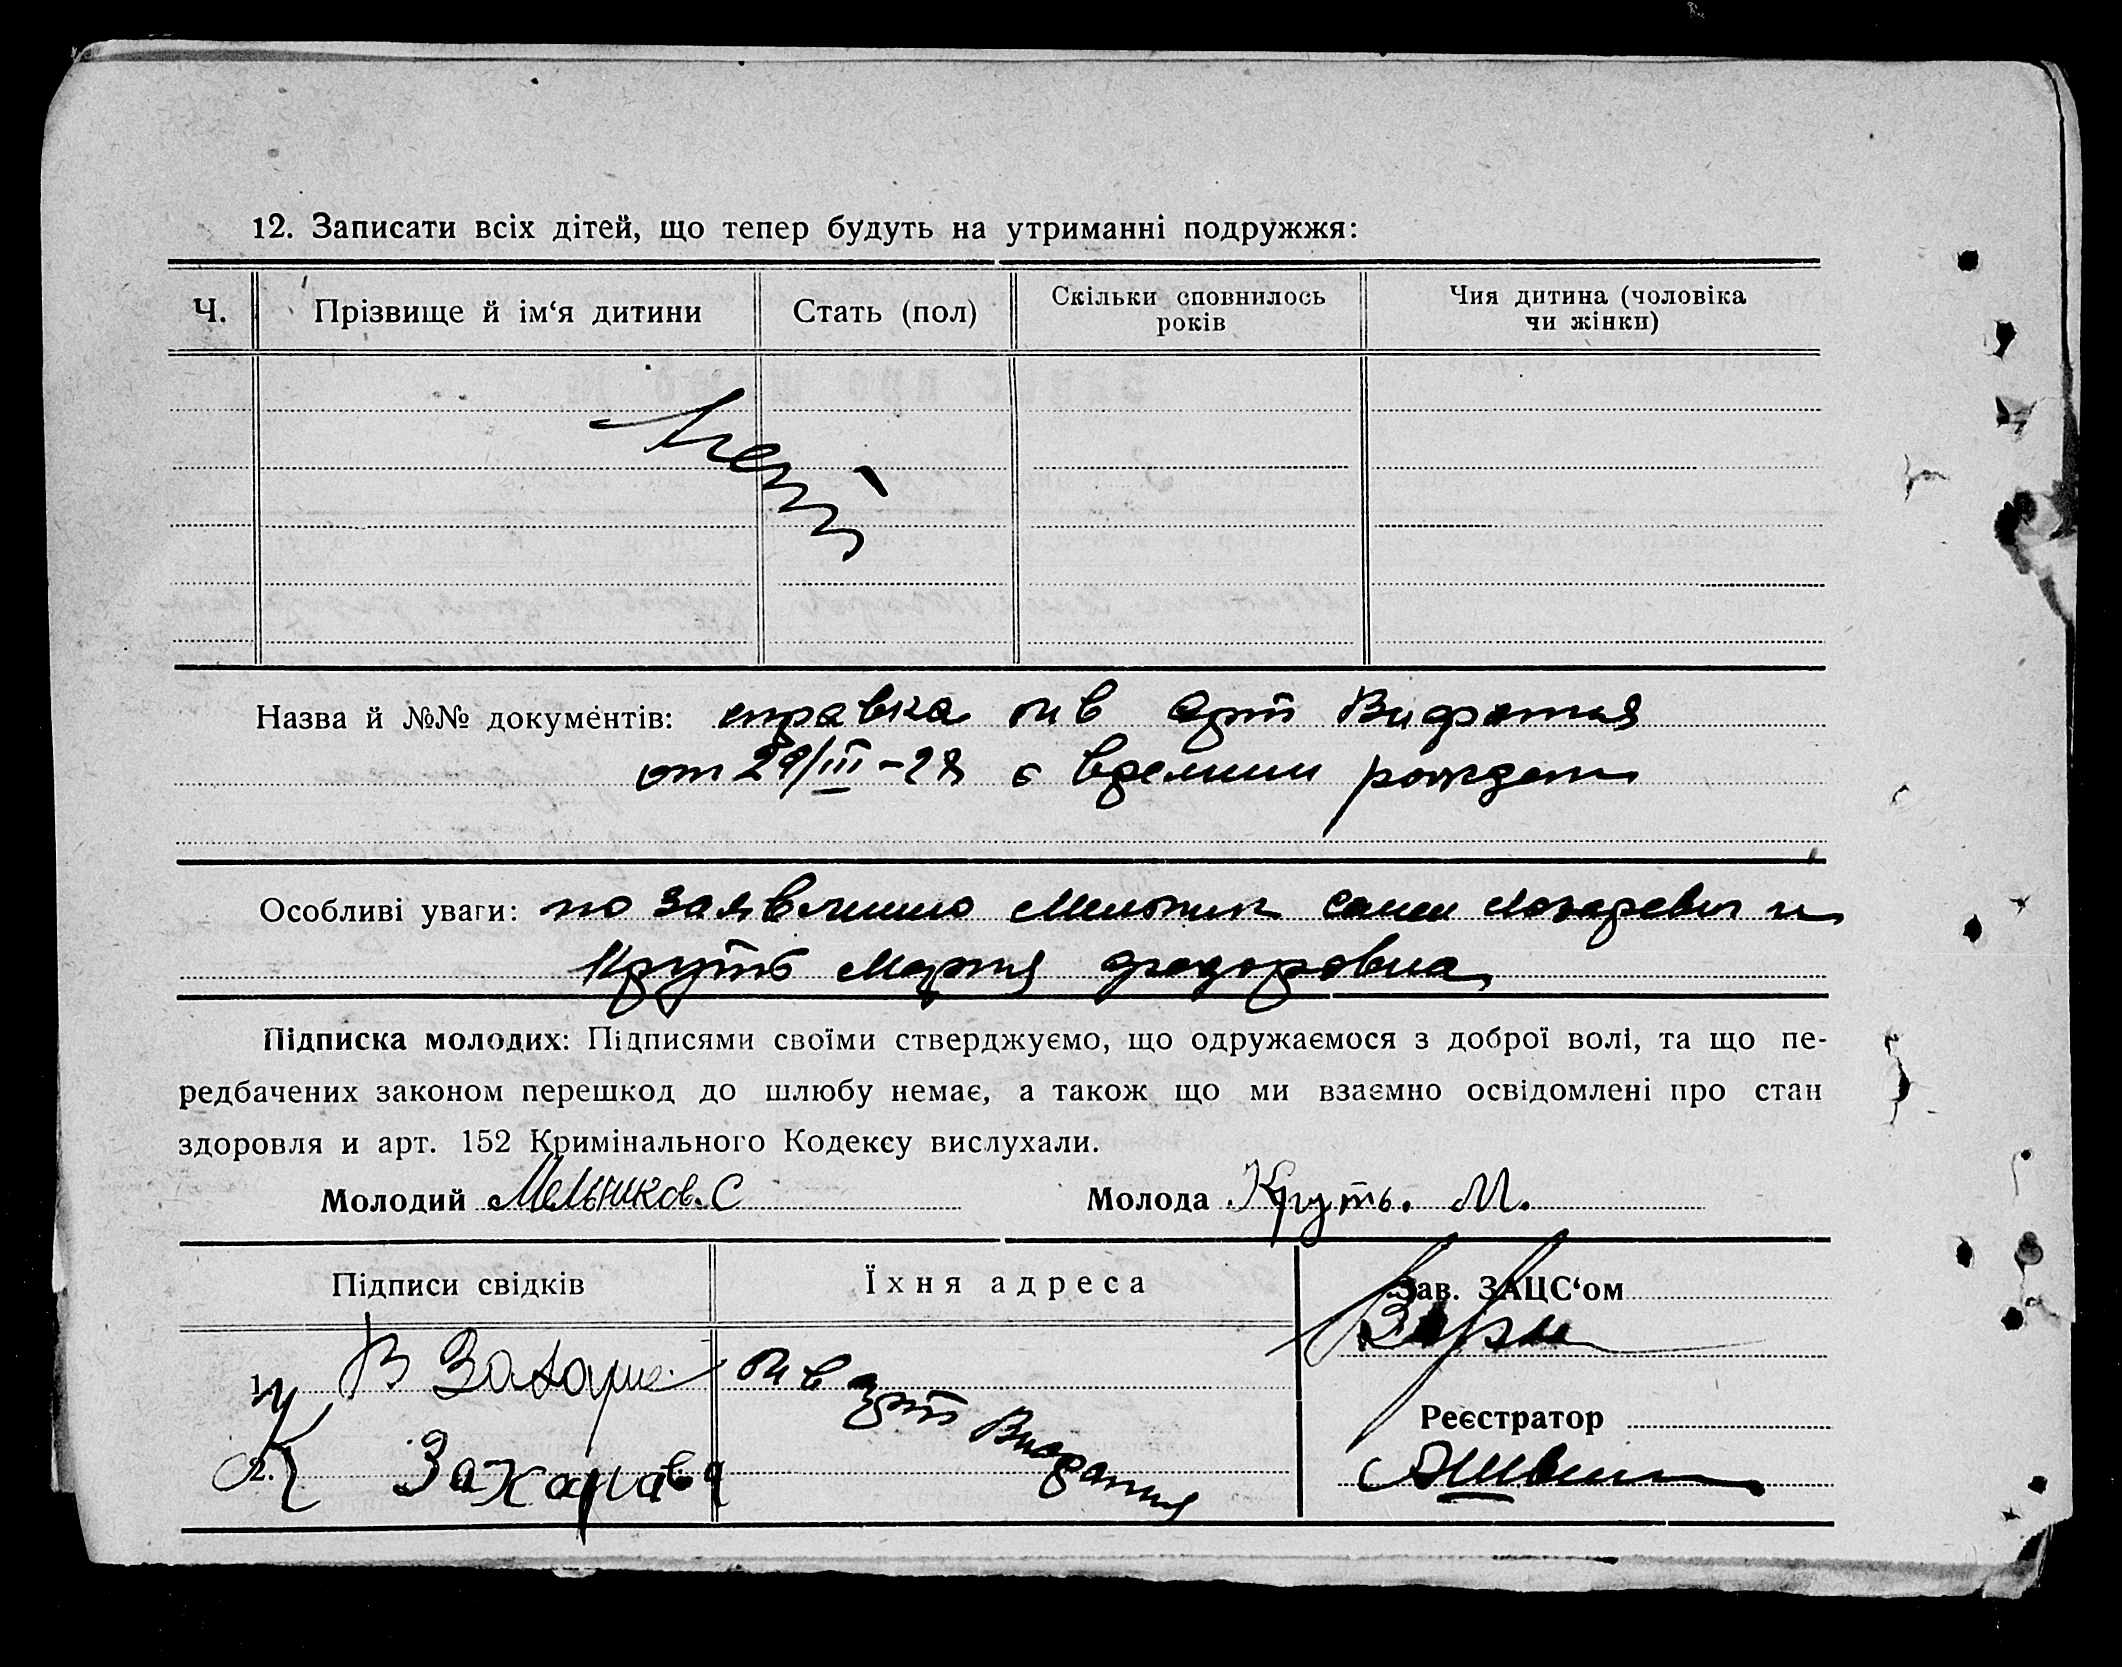 12. Записати всіх дітей, що тепер будуть на утриманні подружжя:
Ч.
Прізвище й ім‘я дитини
Стать (пол)
Скільки сповнилось
років
Чия дитина (чоловіка
чи жінки)
Назва й №№ документів: справка
от 29/III-28 с времени рожден
Особливі уваги: по заявлению Мельник
Круть Мария
Підписка молодих: Підписями своїми стверджуємо, що одружаємося з доброї волі, та що пе-
редбачених законом перешкод до шлюбу немає, а також що ми взаємно освідомлені про стан
здоровля и арт. 152 Кримінального Кодексу вислухали.
Молодий Мельников. С
Молода Круть. М.
Підписи свідків
Їхня адреса
Зав. ЗАЦС‘ом
1.
В
Реєстратор
2.
Захарава